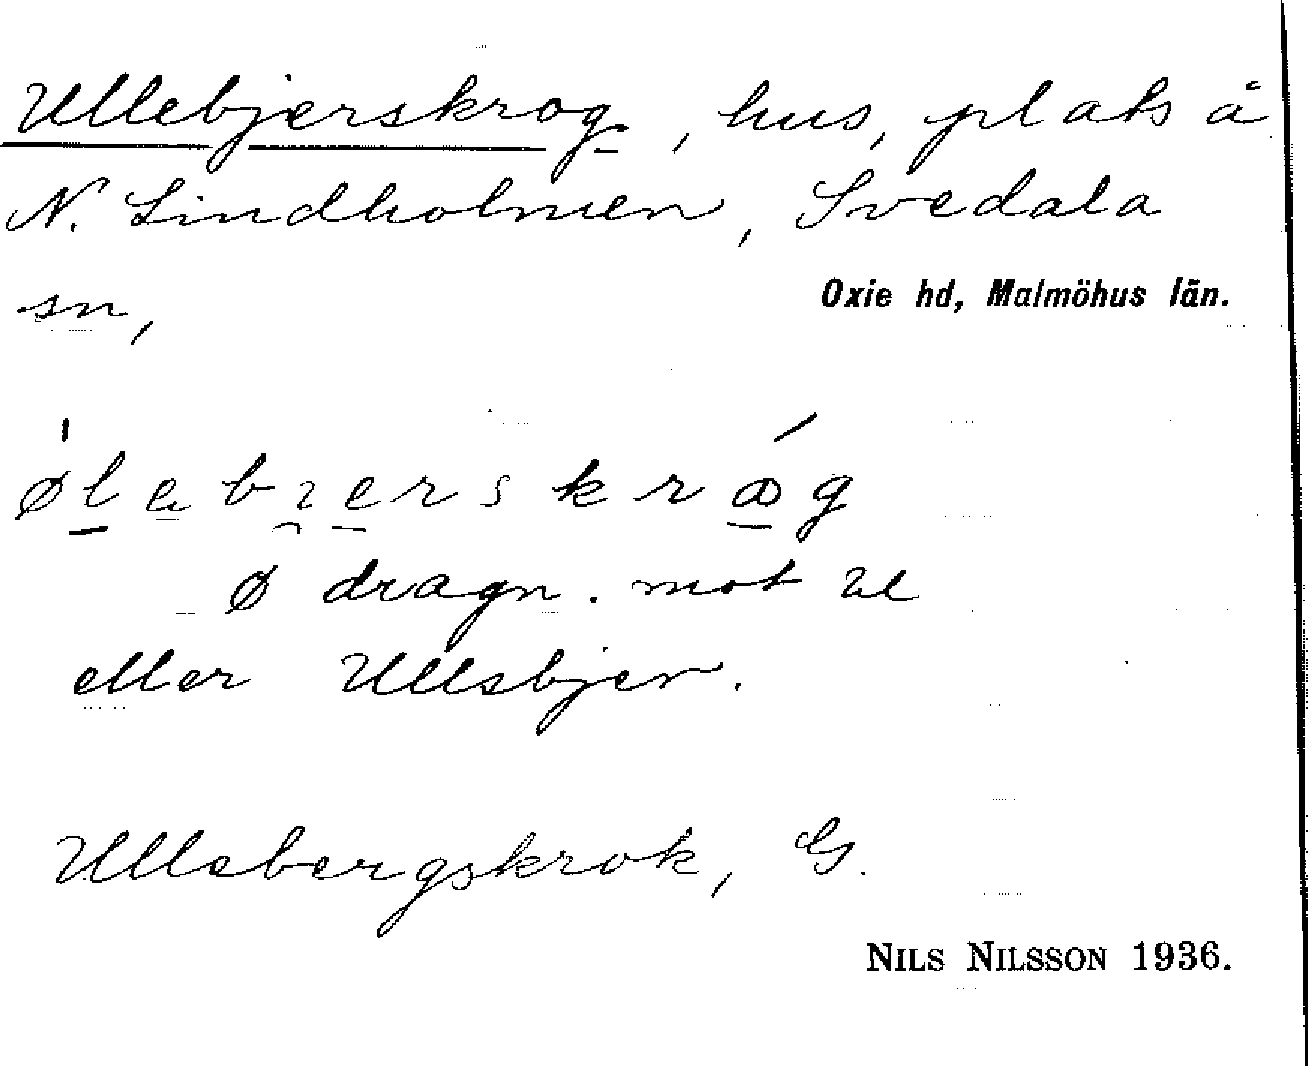 Ullebjerskrog, hus, plats å
N. Lindholmen, Svedala
sn,
Oxie hd, Malmöhus län.
ølebɿerskrag
ø dragn. mot u
eller Ullsbjer.
Ullebergskrok, G.
NILS NILSSON 1936.